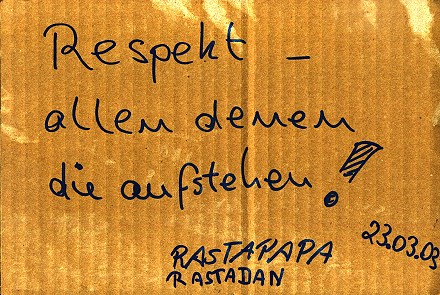 Respekt –
allen denen
die aufstehen!
23.03.03
RASTAPAPA
RASTADAN